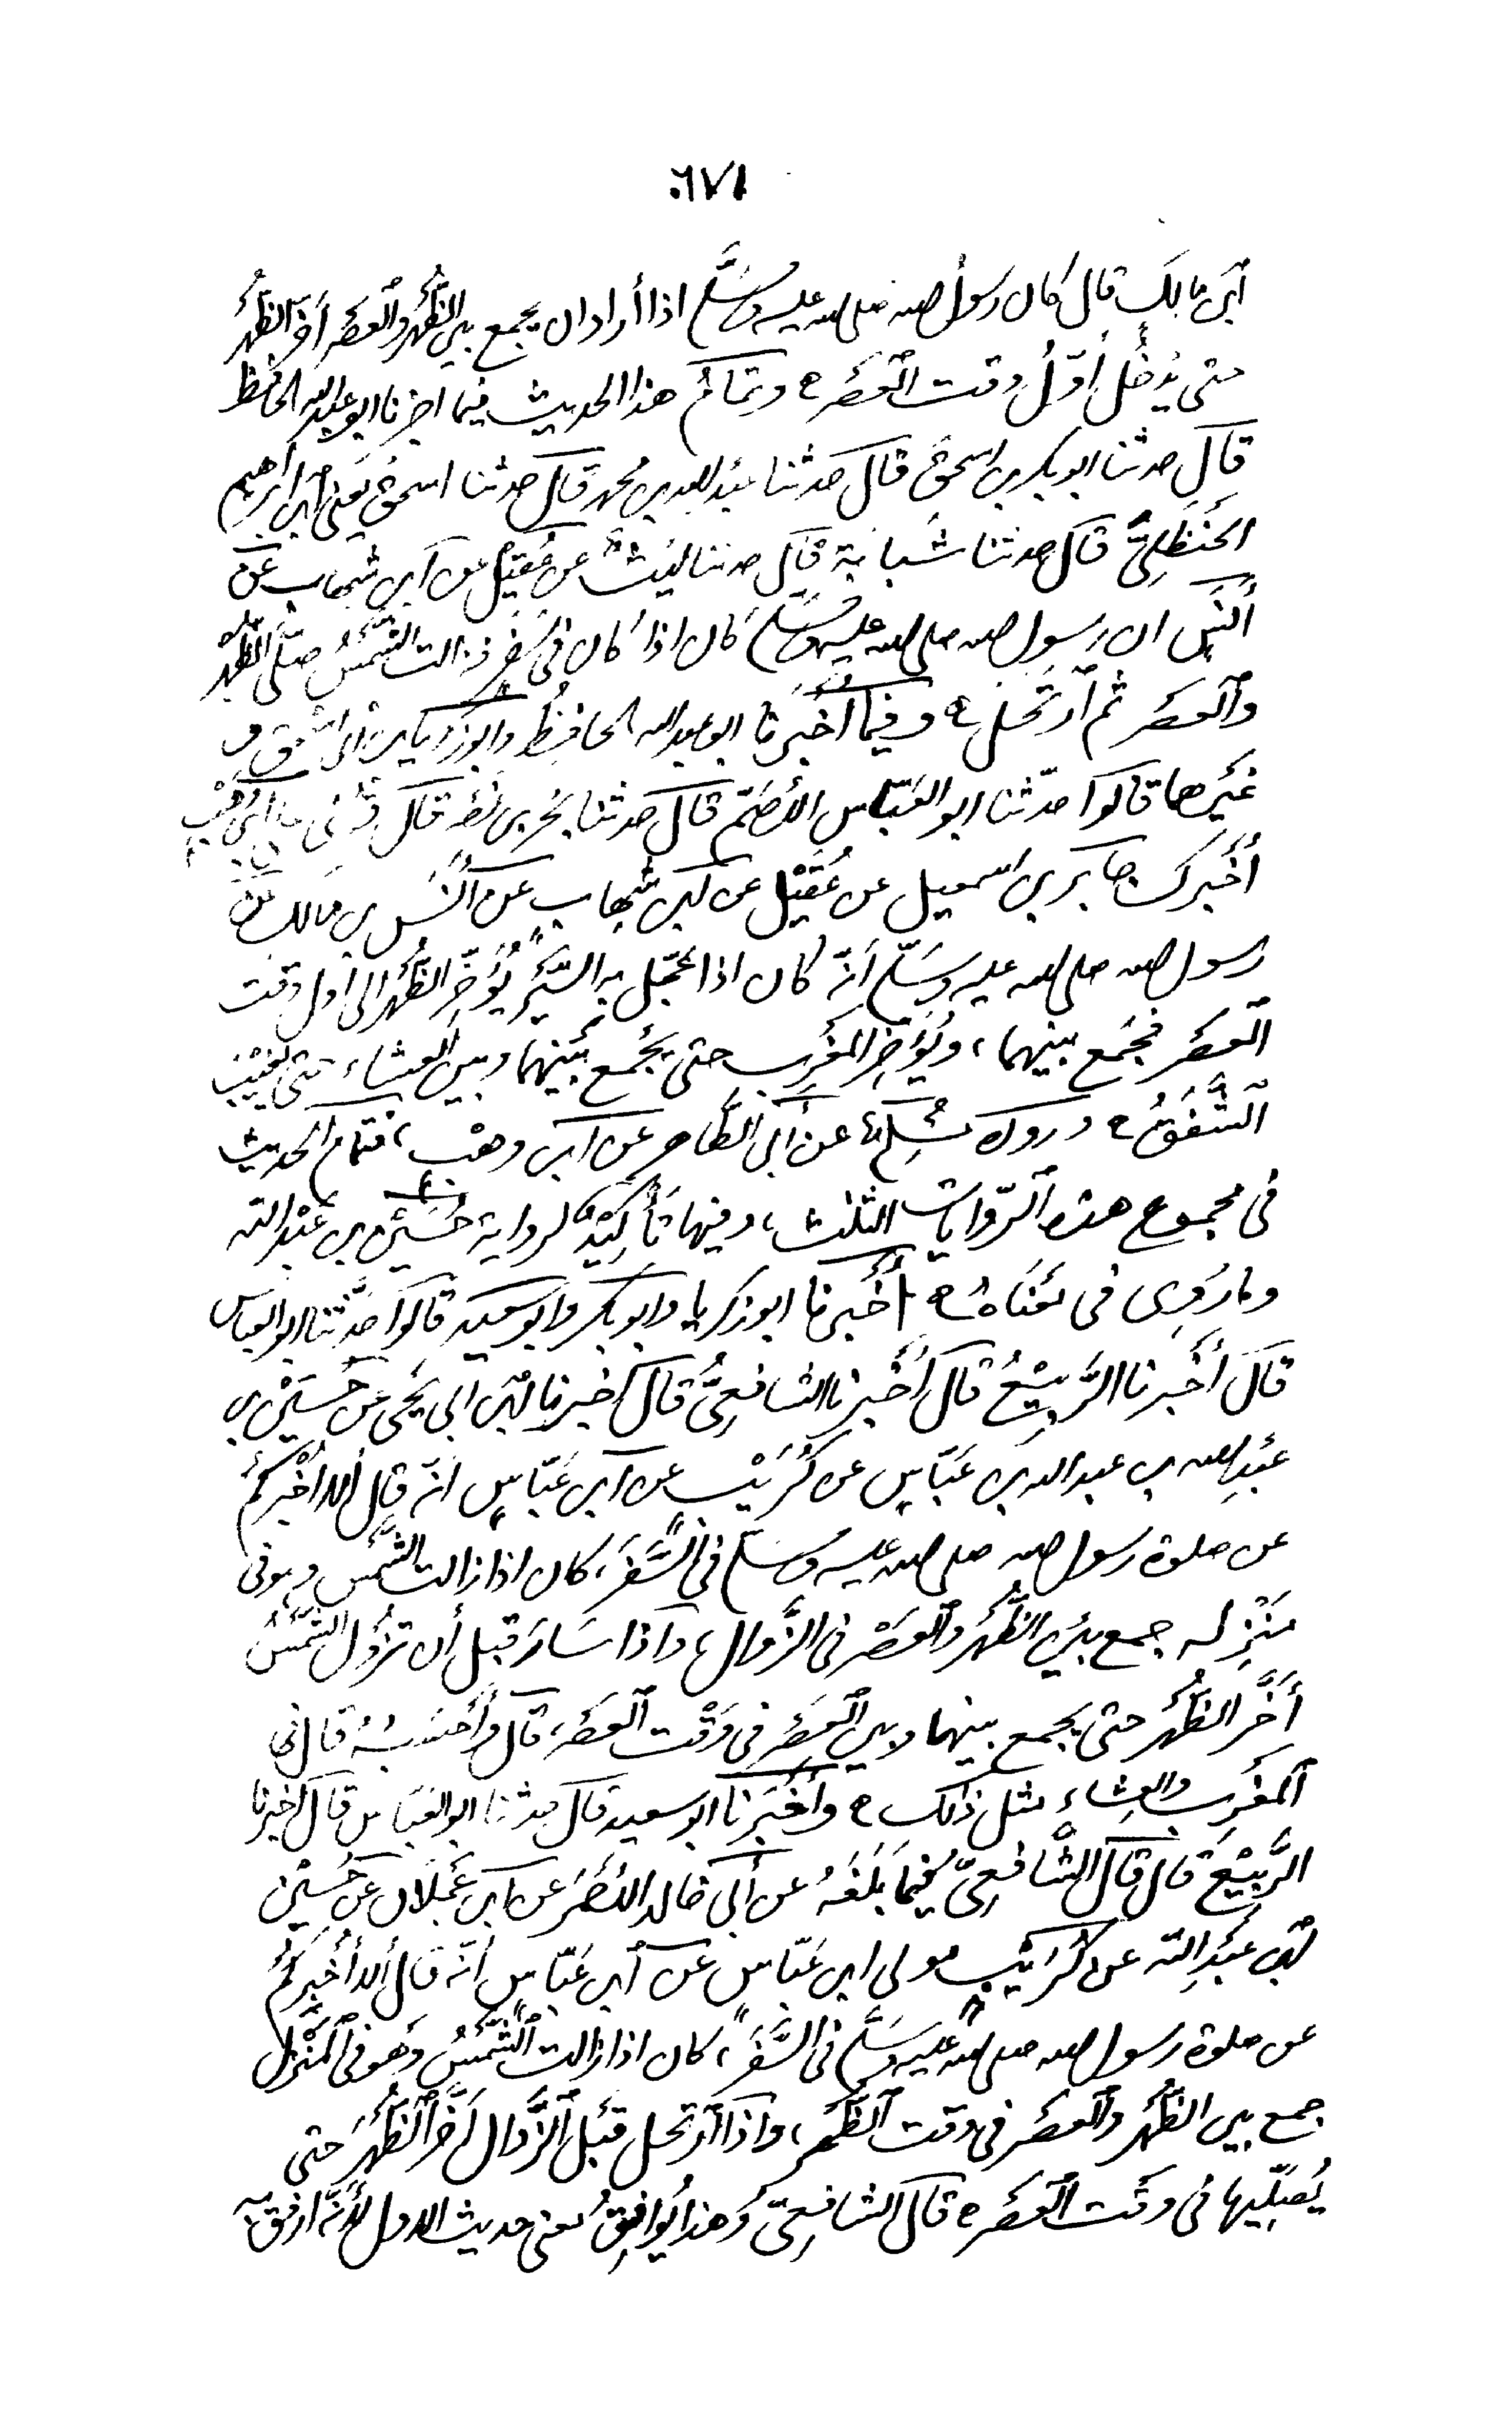 ٦٧١
ابن مالك قال كان رسول الله صلى الله عليه وسلّم اذا أراد ان يجمع بين الظُهر والعصر أخّر الظُهرَ
حتى يُدخُل أوّلُ وقت العصر ٥ وتمامُ هذا الحديث فيما اخبرنا ابو عبد الله الحافظ
قال حدثنا ابو بكر بن اسحق قال حدثنا عبد الله بن محمد قال حدثنا اسحق يعنى ابن ابراهيم
الحَنظَلِىّ قال حدثنا شَبابَة قال حدثنا ليث عن عُقيل عن ابن شهاب عن
أنس ان رسول الله صلى الله عليه وسلّم كان اذا كان فى سَفر فزالت الشمسُ صلّى الظهر
والعصر ثم ارتحل ٥ وفيما أخبرنا ابو عبد الله الحافظُ وابو زكريا بن ابى اسحق و
غيرهما قالوا حدّثنا ابو العبّاس الأصَمّ قال حدثنا بحر بن نصر قال قُرئ على ابن وهب
أخبرك جابر بن اسمعيل عن عُقَيْل عن ابن شهاب عن أنس بن مالك عن
رسول الله صلى الله عليه وسَلّم أنّه كان اذا عجّل به السَيْر يُؤَخِّر الظُهر الى اول وقت
العصر فيجمع بينهما، ويُؤَخِّر المغرب حتى يجمع بينها وبين العشاء حتى يغيبُ
الشَّفَقُ ٥ ورواه مُسْلِم عن أبى الطَّاهر عن ابن وهب، فتمام الحديث
فى مجموع هذه الرّوايات الثلث، وفيها تأكيْدٌ لرواية حُسَيْن بن عَبْد الله
وما رُوِى فى مَعْنَاهُ ٥ أخبرنا ابو زكريا وابو بكر وابو سعيد قالوا حدّثنا ابو العباس
قال أخبرنا الرَّبيْعُ قال أخبرنا الشافعىُّ قال أخبرنا ابن ابى يحيى عن حُسَيْن بن
عبْد الله بن عبد الله بن عبّاس عن كُرَيْب عن ابن عبّاس انّه قال ألا أُخْبركُم
عن صلوة رسول الله صلى الله عليه وسلّم فى السَّفر، كان اذا زالت الشَّمس وهو فى
مَنْزِله جمع بين الظُهْر والعصْر فى الزّوال، واذا سَارَ قبل أن تزوُل الشَّمْسُ
أخَّر الظُهْر حتى يجمع بينها وبين العصر فى وَقْت العصر، قال وأحسبُهُ قال فى
المغرب والعِشاء مثل ذلك ٥ وأخْبَرنا ابو سعيد قال حدثنا ابو العباس قال أخبرنا
الرَّبِيْع قال قال الشّافعىّ فيما بَلَغَهُ عن أبى خالد الأحمَرَ عن ابن عَجْلان عن حُسَيْن
ابن عبْد الله عن كُرَيْب مولى ابن عبّاس عن ابن عبّاس أنّه قال ألا أُخْبركُم
عن صلوة رسول الله صلى الله عليه وسَلَّم فى السَّفَر، كان اذا زالت الشَّمْسُ وَهو فى المَنْزِل
جمع بين الظُهْر والعصر فى وقت الظُّهر، واذا ارتحل قبْل الزَّوال أخَّر الظُّهرَ حتى
يُصَلِّيها فى وقْت العصر ٥ قال الشافعىّ وهذا يُوافِقُ معنى حديث الاول لأنّه ارفق به